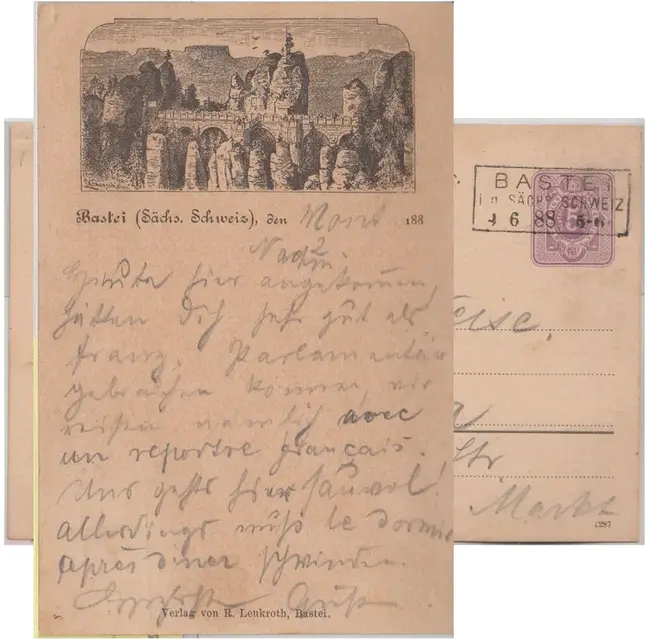 Bastei (Sächs. Schweiz), den Mont 188
Nachm.
Heute hier angekommen,
hätten Dich sehr gut als
franz. Parlamentär
gebrauchen können, wir
reisen nämlich avec
un reportre français.
Uns gehts hier sauwol!
Allerdings muß le dormir
après diner schwinden.
Grüße
Verlag von R. Leukroth, Bastei.
BASTEI
i.d. SÄCHS. SCHWEIZ
4 6 88 5-6
5
Str
Markt
1287